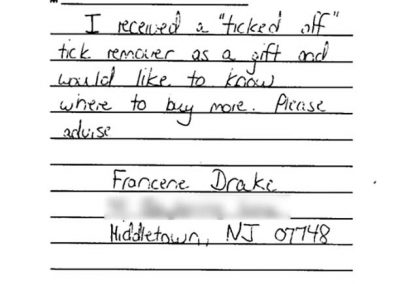 I received a "ticked off"
tick remover as a gift and
would like to know
where to buy more. Please
advise
Francene Drake
Middletown, NJ 07748